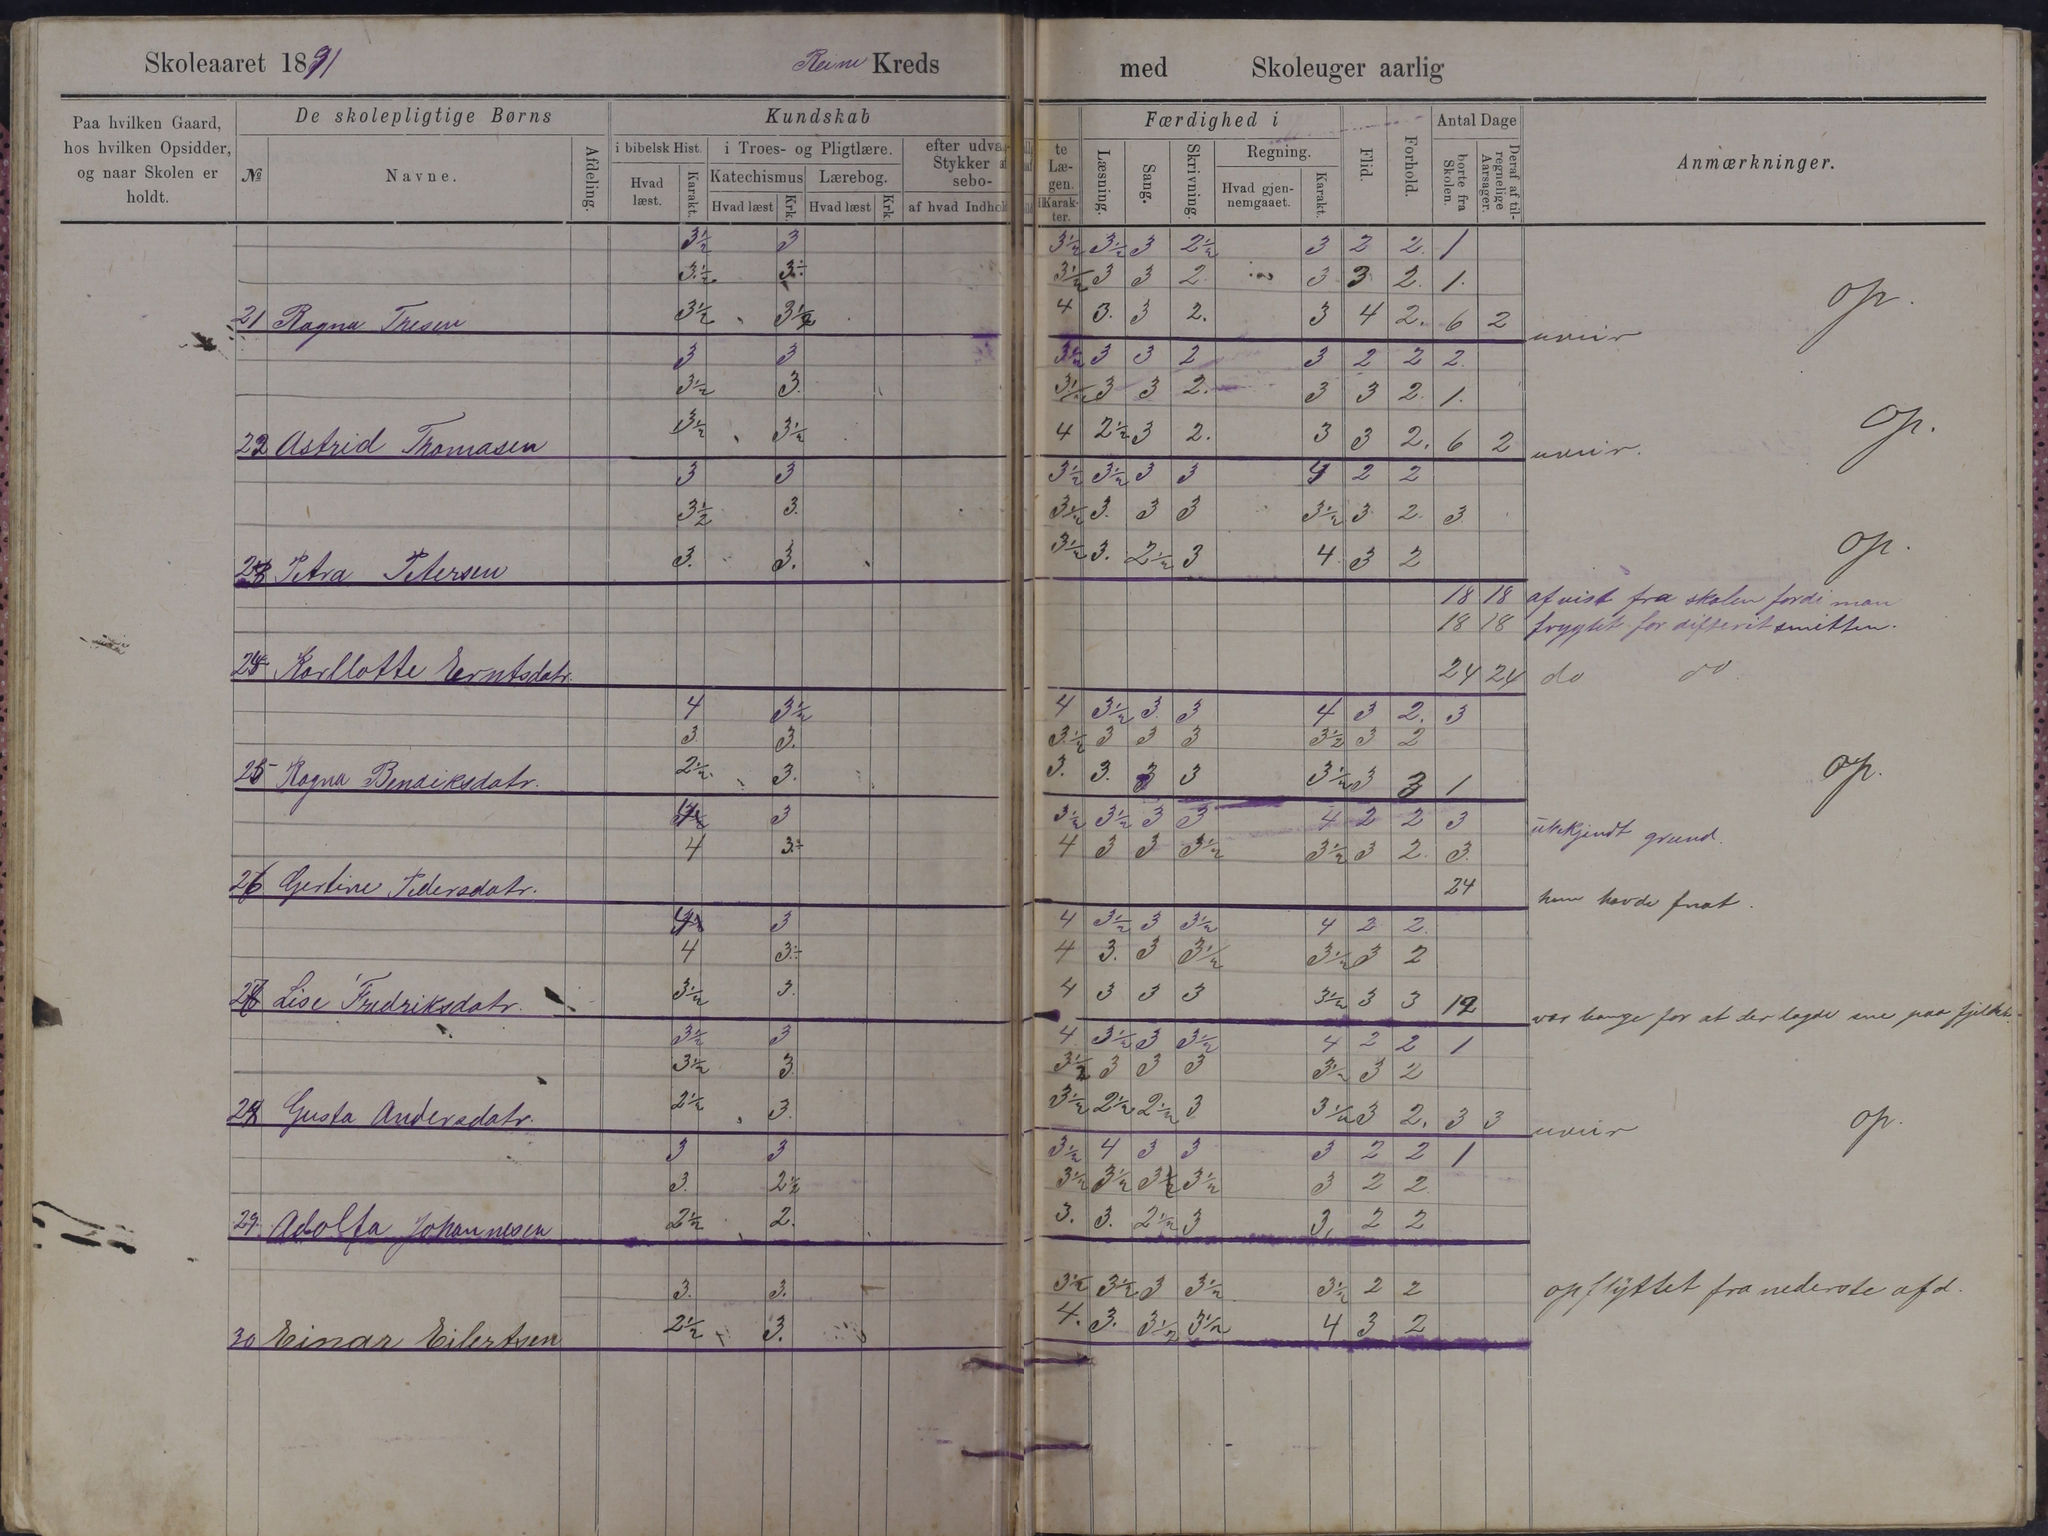 Skoleaaret 1891 Reine Kreds med Skoleuger aarlig
Paa hvilken Gaard, hos hvilken Opsidder, og naar Skolen er holdt.
De skolepligtige Børns
№ Navne. Afdeling.
Kundskab
i bibelsk Hist. i Troes- og Pligtlære. efter udva- Stykker sebo- te Læ- gen.
Hvad læst. Karakt. Katechismus Lærebog. af hvad Indhol Karak- ter.
Hvad læst Krk. Hvad læst Krk.
Færdighed i
Læsning. Sang. Skrivning. Regning. Hvad gjen- nemgaaet. Karakt. Flid. Forhold.
Antal Dage
borte fra Skolen. Deraf af til- regnelige Aarsager.
Anmærkninger.
3½ 3 3½ 3½ 3 2½ 3 2 2. 1
3½ 3½ 3½ 3 3 2. 3 3 2. 1.
21 Ragna Thesen 3½ 3½ 4 3. 3 2. 3 4 2. 6 2 uveir op.
3 3 3½ 3 3 2 3 2 2 2.
3½ 3. 3½ 3 3 2. 3 3 2. 1.
22 Astrid Thomasen 3½ 3½ 4 2½ 3 2. 3 3 2. 6 2 uveir. op.
3 3 3½ 3½ 3 3 4 2 2
3½ 3. 3½ 3. 3 3 3½ 3 2. 3
23 Petra Petersen 3. 3. 3½ 3. 2½ 3 4 3 2 op.
18 18 afvist fra skolen fordi man
18 18 frygtet for difterit smitten.
24 Karllotte Erntsdatr. 24 24 do do.
4 3½ 4 3½ 3 3 4 3 2. 3
3 3. 3½ 3 3 3 3½ 3 2
25 Ragna Bendiksdatr. 2½ 3. 3. 3. 3 3 3½ 3 3 1 op.
3 3½ 3½ 3 3 4 2 2 3 ubekjendt grund.
4 3½ 4 3 3 3½ 3½ 3 2. 3.
26 Gertine Pedersdatr. 24 hun havde fnat.
3 4 3½ 3 3½ 4 2 2.
4 3½ 4 3. 3 3½ 3½ 3 2
27 Lise Fredriksdatr. 3½ 3. 4 3 3 3 3½ 3 3 12 var bange for at der lagde sne paa fjeldet.
3½ 3 4 3½ 3 3½ 4 2 2 1
3½ 3 3½ 3 3 3 3½ 3 2
28 Gusta Andersdatr. 2½ 3. 3½ 2½ 2½ 3 3½ 3 2. 3 3 uveir op.
3 3 3½ 4 3 3 3 2 2 1
3. 2½ 3½ 3½ 3½ 3½ 3 2 2
29. Adolfa Johannesen 2½ 2. 3. 3. 2½ 3 3. 2 2
3. 3. 3½ 3½ 3 3½ 3½ 2 2 opflyttet fra nederste afd.
30 Einar Eilertsen 2½ 3. 4. 3. 3½ 3½ 4 3 2